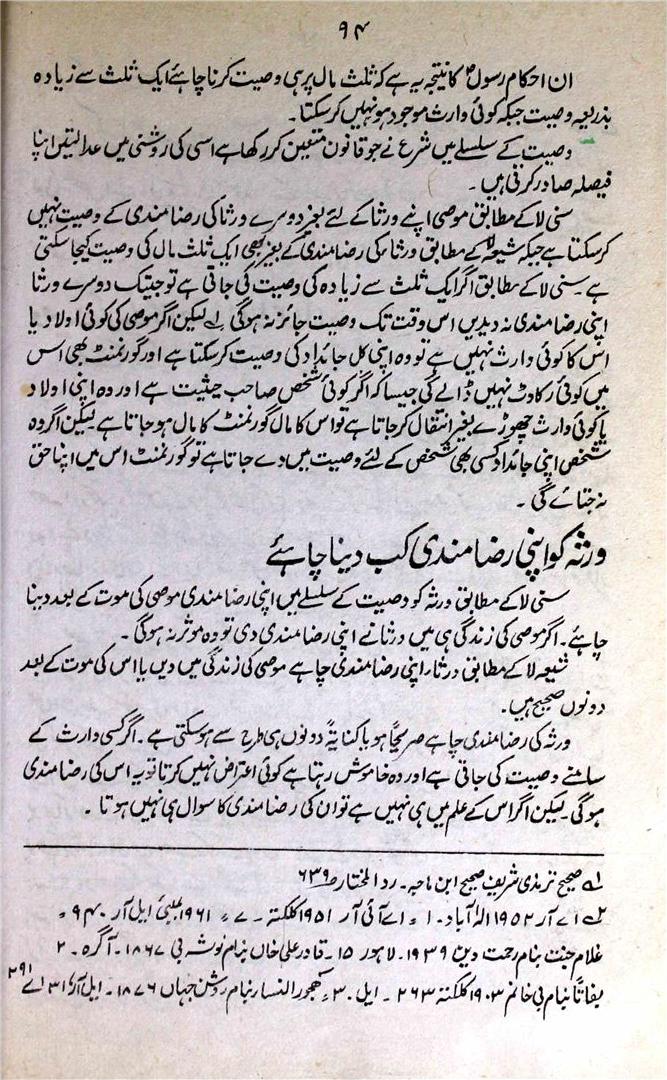 ۹۴
ان احکام رسولؐ کا نتیجہ یہ ہے کہ ثلث مال پر ہی وصیت کرنا چاہئے ایک ثلث سے زیادہ
بذریعہ وصیت جبکہ کوئی وارث موجود ہو نہیں کر سکتا۔
وصیت کے سلسلے میں شرع نے جو قانون متعین کر رکھا ہے اسی کی روشنی میں عدالتیں اپنا
فیصلہ صادر کرتی ہیں۔
سنی لا کے مطابق موصی اپنے ورثا کے لئے بغیر دوسرے ورثا کی رضامندی کے وصیت نہیں
کر سکتا ہے جبکہ شیعہ لا کے مطابق ورثاء کی رضامندی کے بغیر بھی ایک ثلث مال کی وصیت کیجا سکتی
ہے۔ سنی لا کے مطابق اگر ایک ثلث سے زیادہ کی وصیت کی جاتی ہے تو جبتک دوسرے ورثا
اپنی رضامندی نہ دیدیں اس وقت تک وصیت جائز نہ ہوگی لے لیکن اگر موصی کی کوئی اولاد یا
اس کا کوئی وارث نہیں ہے تو وہ اپنی کل جائداد کی وصیت کر سکتا ہے اور گورنمنٹ بھی اس
میں کوئی رکاوٹ نہیں ڈالے گی جیسا کہ اگر کوئی شخص صاحب حیثیت ہے اور وہ اپنی اولاد
یا کوئی وارث چھوڑے بغیر انتقال کر جاتا ہے تو اس کا مال گورنمنٹ کا مال ہو جاتا ہے لیکن اگر وہ
شخص اپنی جائداد کسی بھی شخص کے لئے وصیت میں دے جاتا ہے تو گورنمنٹ اس میں اپنا حق
نہ جتائے گی۔
ورثہ کو اپنی رضامندی کب دینا چاہئے
سنی لا کے مطابق ورثہ کو وصیت کے سلسلے میں اپنی رضامندی موصی کی موت کے بعد دینا
چاہئے۔ اگر موصی کی زندگی ہی میں ورثا نے اپنی رضامندی دی تو وہ موثر نہ ہوگی۔
شیعہ لا کے مطابق ورثاء اپنی رضامندی چاہے موصی کی زندگی میں دیں یا اس کی موت کے بعد
دونوں صحیح ہیں۔
ورثہ کی رضامندی چاہے صریحاً ہو یا کنایتہً دونوں ہی طرح سے ہو سکتی ہے۔ اگر کسی وارث کے
سامنے وصیت کی جاتی ہے اور وہ خاموش رہتا ہے کوئی اعتراض نہیں کرتا تو یہ اس کی رضامندی
ہوگی۔ لیکن اگر اس کے علم میں ہی نہیں ہے تو ان کی رضامندی کا سوال ہی نہیں ہوتا۔
لے صحیح ترمذی شریف صحیح ابن ماجہ۔ رد المختار ص۶۳۹
اے آر ۱۹۵۲ الہ آباد۔ ۱ء اے آئی آر ۱۹۵۱ کلکتہ۔ ۷ء ۱۹۶۱ بمبئی ایل آر ۹۴۰ء
غلام جنت بنام رحمت دین ۱۹۳۹ء لاہور ۱۵۔ قادر علی خاں بنام نوشہ بی ۱۸۶۷۔ آگرہ۔ ۲
بنام بی خانم ۱۹۰۳ کلکتہ ۲۶۳۔ ایل۔ ۳۰ء کھجور النساء بنام روشن جہاں ۱۸۷۶۔ ایل آر ۳ اے ۲۹۱